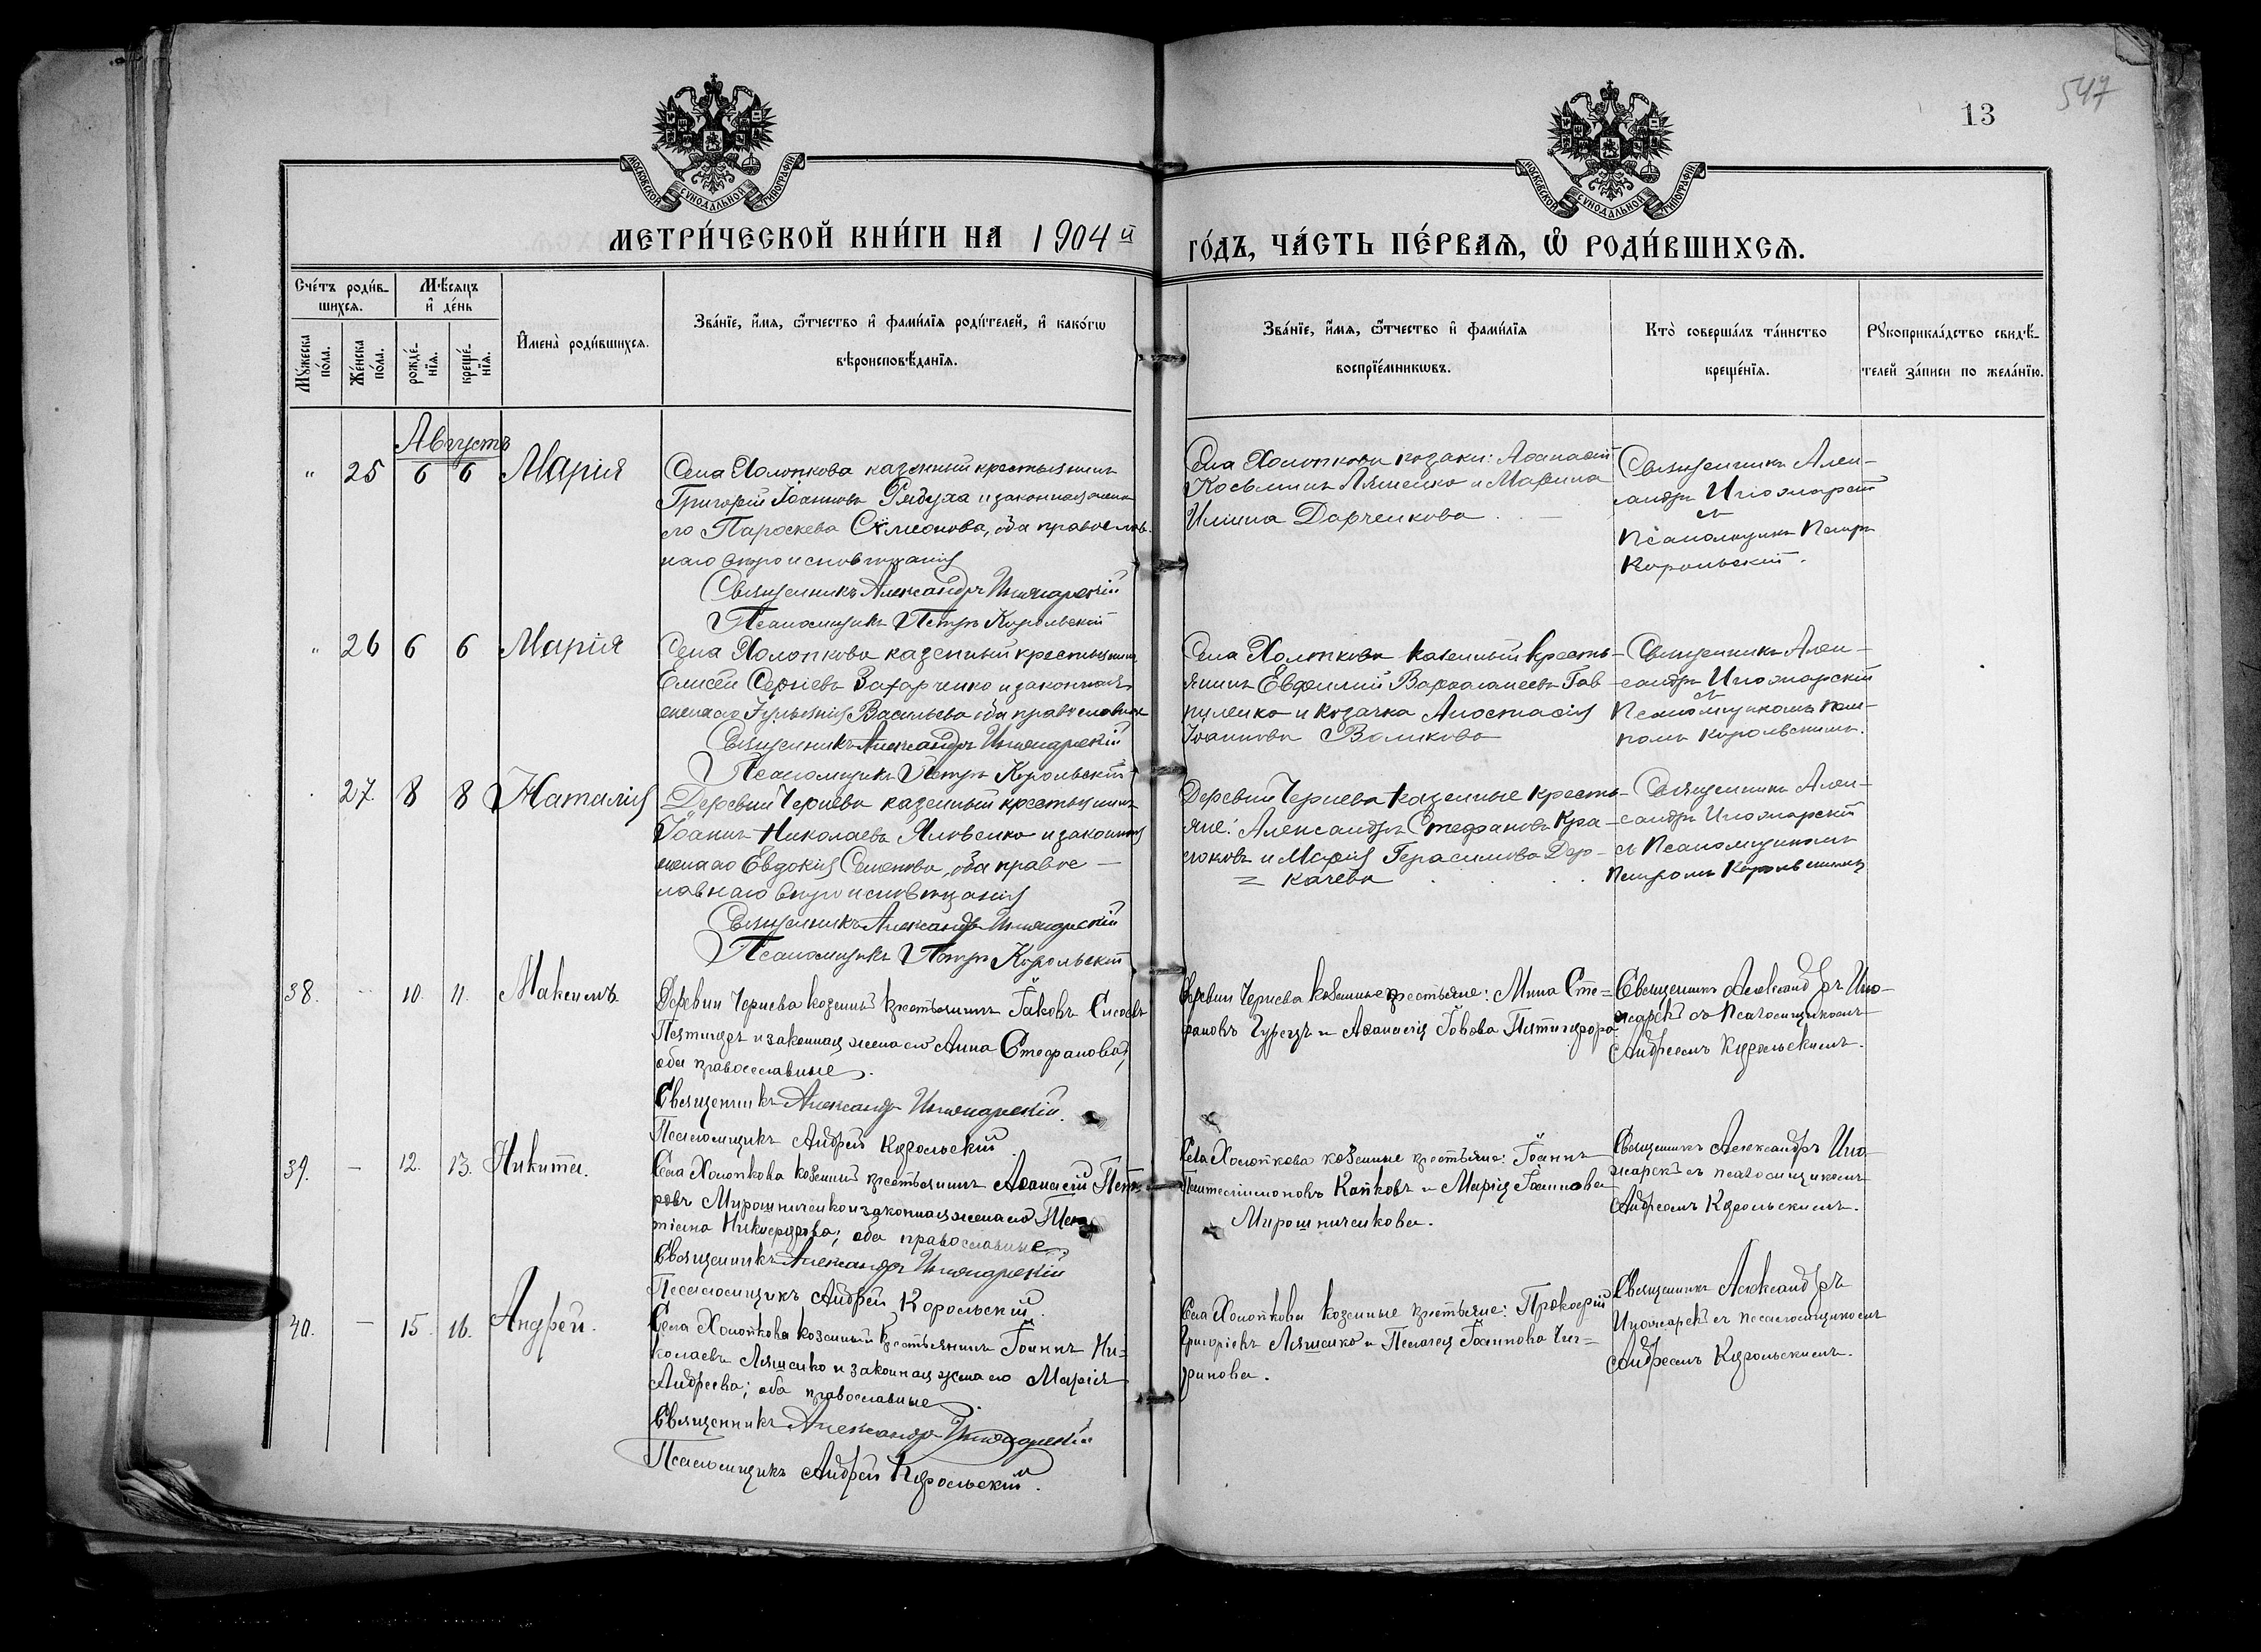 547
13
МОСКОВСКОЙ СѴНОДАЛЬНОЙ ТИПОГРАФІИ
МОСКОВСКОЙ СѴНОДАЛЬНОЙ ТИПОГРАФІИ
МЕТРИ́ЧЕСКОЙ КНИ́ГИ НА 1904й
ГО́ДЪ, ЧА́СТЬ ПЕ́РВАѦ, Ѡ҆ РОДИ́ВШИХСѦ.
Сче́тъ роди́в-
шихсѧ.
Мꙋ́жеска по́ла.
Же́нска по́ла.
Мѣ́сѧцъ
и҆ де́нь
рожде́-
нїѧ.
креще́-
нїѧ.
И҆мена̀ роди́вшихсѧ.
Зва́нїе, и҆́мѧ, ѻ҆́тчество и҆ фами́лїѧ роди́телей, и҆ како́гѡ
вѣроисповѣ́данїѧ.
Зва́нїе, и҆́мѧ, ѻ҆́тчество и҆ фами́лїѧ
воспрїе́мникѡвъ.
Кто̀ соверша́лъ та́инство
креще́нїѧ.
Рꙋкоприкла́дство свидѣ́-
телей за́писи по жела́нїю.
Августъ
" 25 6 6 Марія
Села Холопкова казенный крестьянинъ
Григорій Іоанновъ Рябуха и законная жена
его Параскева Симеонова, оба православ-
наго вѣроисповѣданія
Священникъ Александръ
Псаломщикъ Петръ Корольскій
Села Холопкова козаки: Аѳанасій
Косьминъ Ляшенко и Марина
Ильина Дорченкова
Священникъ Алек-
сандръ
съ
Псаломщик Петръ
Корольскій.
" 26 6 6 Марія
Села Холопкова казенный крестьянинъ
Елисей Сергіевъ Захарченко и законная
жена его Васильева оба православн
Священникъ Александръ
Псаломщикъ Петръ Корольскій
Села Холопкова казенный кресть-
янинъ Евфимій Варѳоломеевъ Гав-
риленко и козачка Анастасія
Іоаннова Воликова
Священникъ Алек-
сандръ
съ
Псаломщикомъ Пет-
ромъ Корольскимъ.
27. 8 8 Наталія
Деревни Чернева казенный крестьянинъ
Іоаннъ Николаевъ Яловенко и законная
жена его Евдокія Семенова, оба правос-
лавнаго вѣроисповѣданія
Священникъ Александръ
Псаломщикъ Петръ Корольскій
Деревни Чернева казенные кресть-
яне: Александръ Стефановъ Кра-
сюковъ и Марія Герасимова Дер-
качева
Священникъ Алек-
сандръ
съ Псаломщикомъ
Петромъ Корольскимъ
38. 10. 11. Максимъ.
Деревни Чернева козенный крестьянинъ Іаковъ Сисоевъ
и законная жена его Анна Стефанова,
оба православные.
Священникъ Александръ
Псаломщикъ Андрей Корольскій.
Деревни Чернева козенные крестьяне: Мина Сте-
фановъ и Аѳанасія
Священникъ Александръ
съ Псаломщикомъ
Андреемъ Корольскимъ.
39. — 12. 13. Никита.
Села Холопкова козенный крестьянинъ Аѳанасій Пет-
ровъ Мирошниченко и законная жена его Тат-
тіана Никифорова; оба православные.
Священникъ Александръ
Псаломщикъ Андрей Корольскій.
Села Холопкова козенные крестьяне: Іоаннъ
Пантелеимоновъ Капковъ и Марія Іоаннова
Мирошниченкова.
Священникъ Александръ
съ псаломщикомъ
Андреемъ Корольскимъ.
40. — 15. 16. Андрей.
Села Холопкова козенный крестьянинъ Іоаннъ Ни-
колаевъ Ляшенко и законная жена его Марія
Андреева; оба православные.
Священникъ Александръ
Псаломщикъ Андрей Корольскій.
Села Холопкова козенные крестьяне: Прокофій
Григоріевъ Ляшенко и Пелагея Іоаннова Чиг-
ринова.
Священникъ Александръ
съ псаломщикомъ
Андреемъ Корольскимъ.